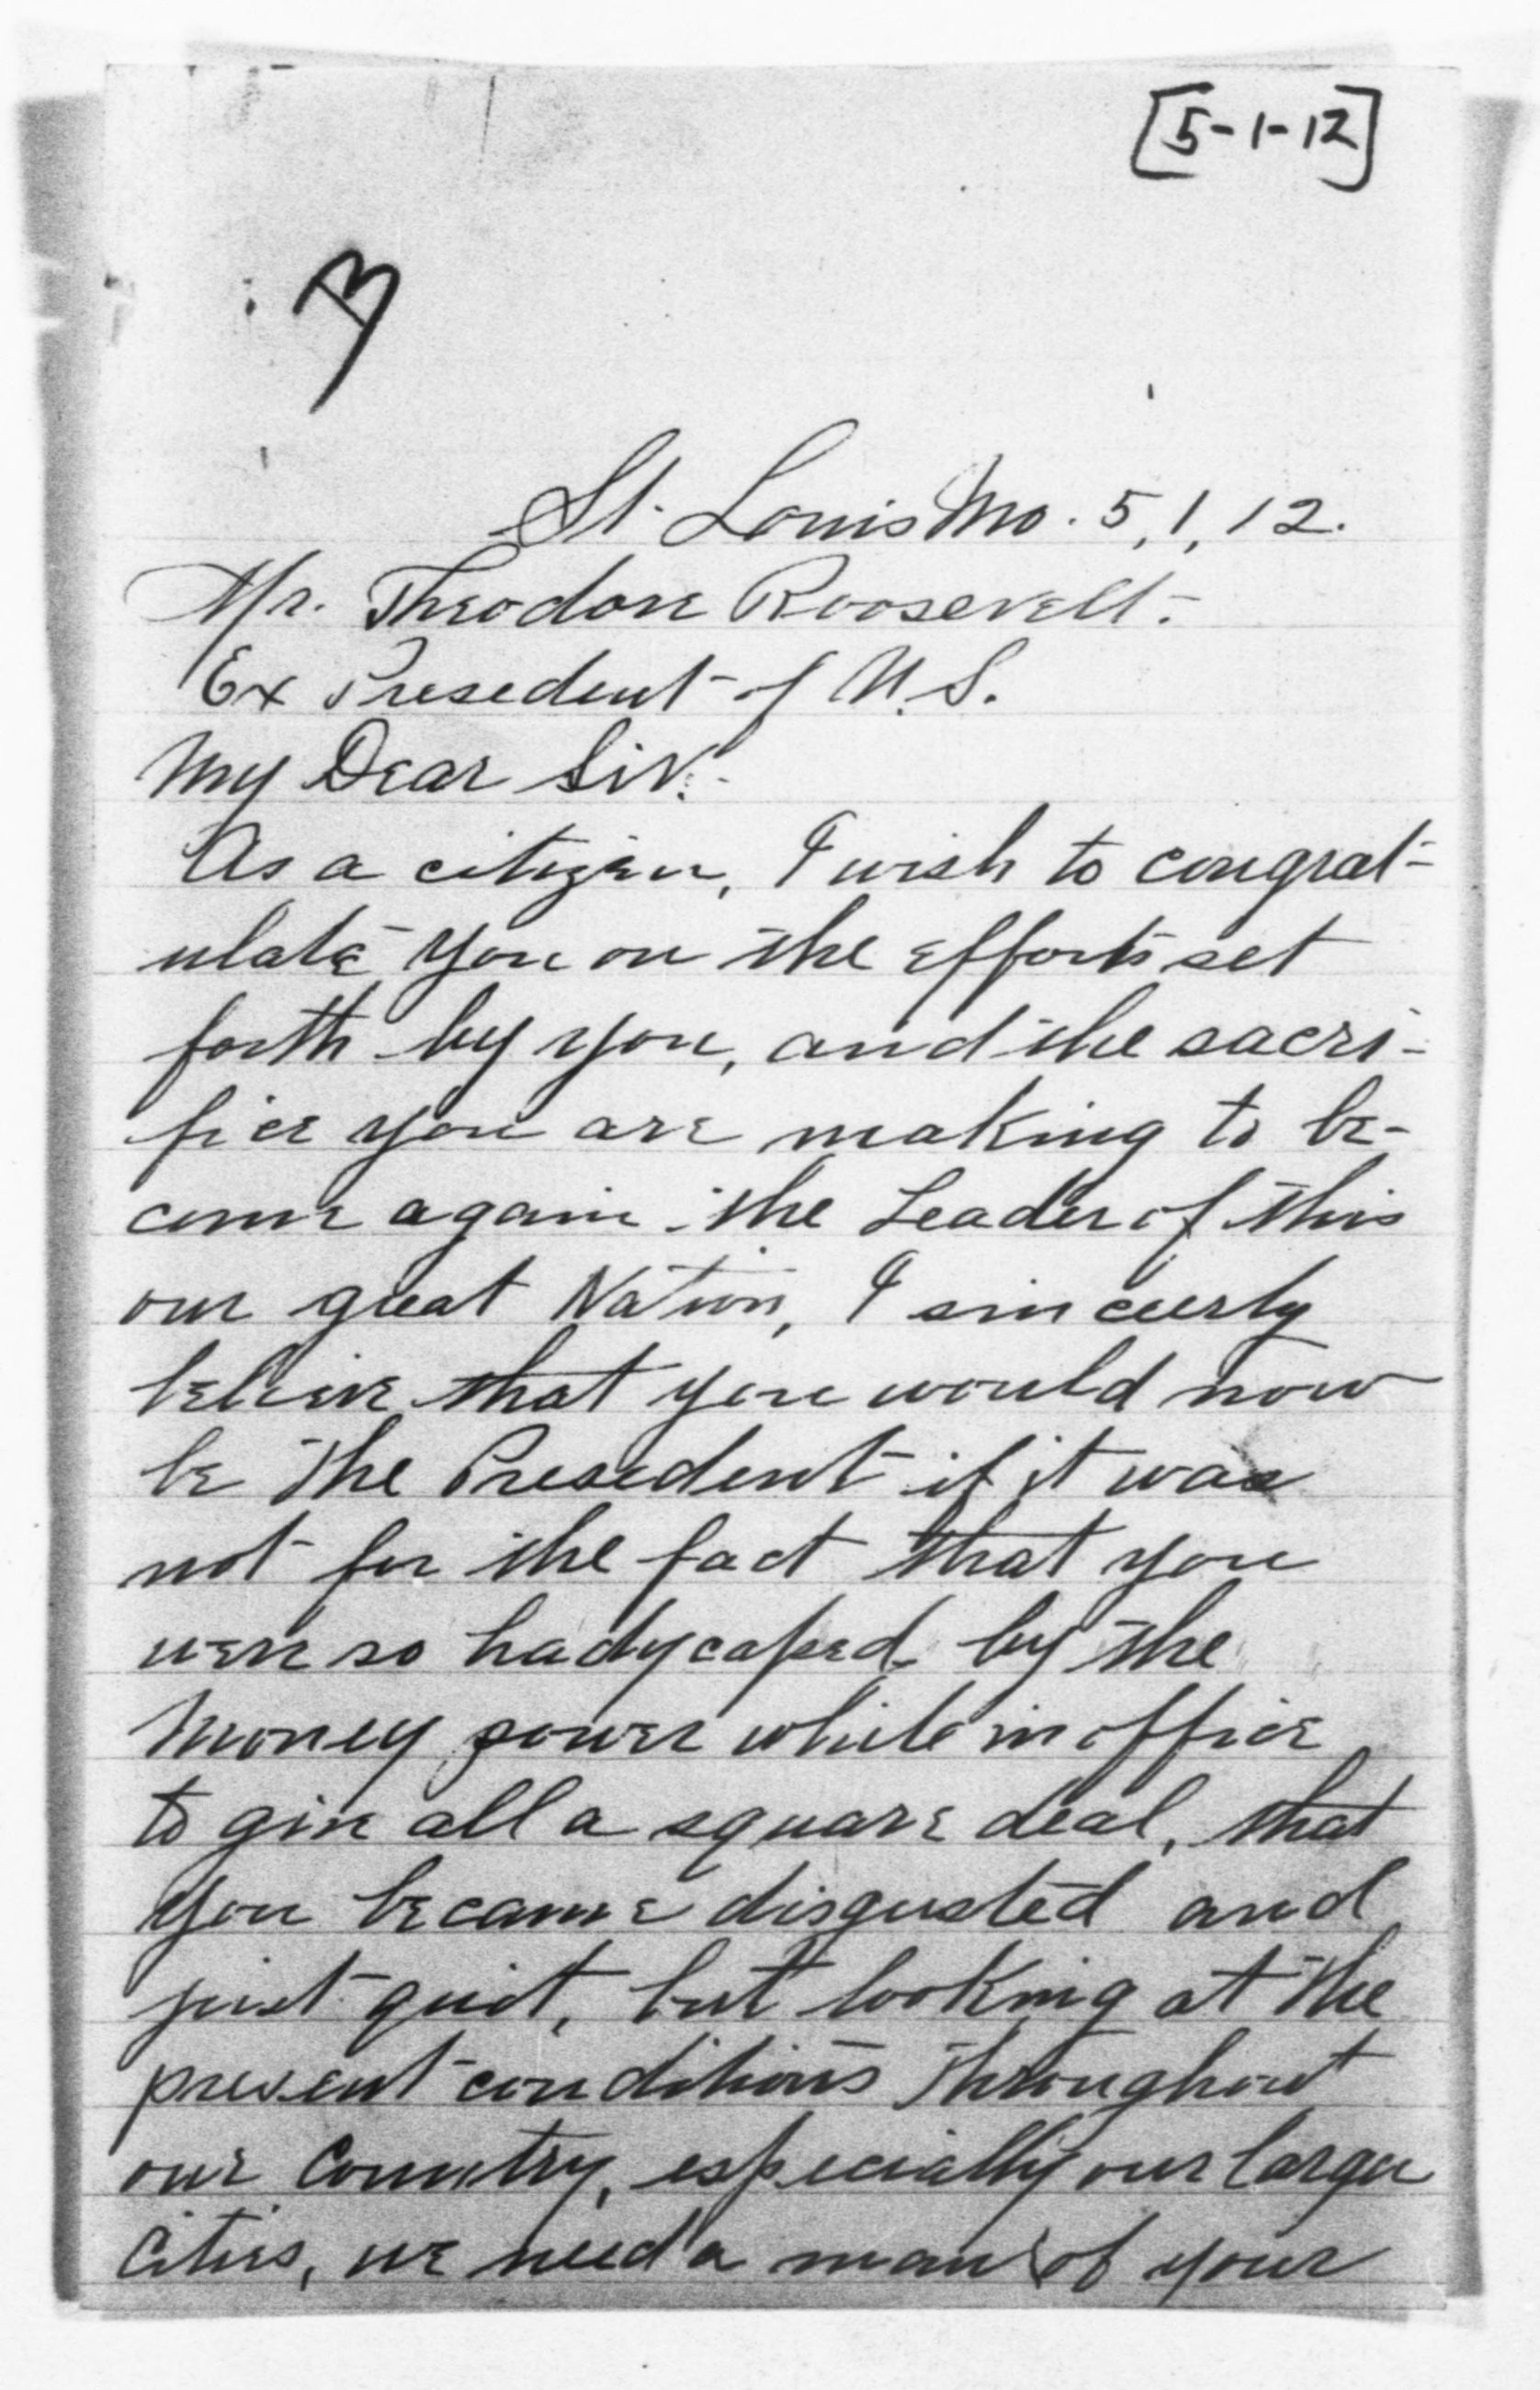 [5-1-12]
St. Louis Mo. 5, 1, 12.
Mr. Theodore Roosevelt.
Ex Presedent of U.S.
My Dear Sir:
As a citizen, I wish to congrat-
ulate you on the efforts set
forth by you, and the sacri-
fice you are making to be-
come again the Leader of this
our great Nation, I sincerly
beleive that you would now
be the Presedent if it was
not for the fact that you
were so hadycaped by the
money power while in office
to give all a square deal, that
you became disgusted and
just quit, but looking at the
present conditions throughout
our Country, especially our larger
Cities, we need a man of your